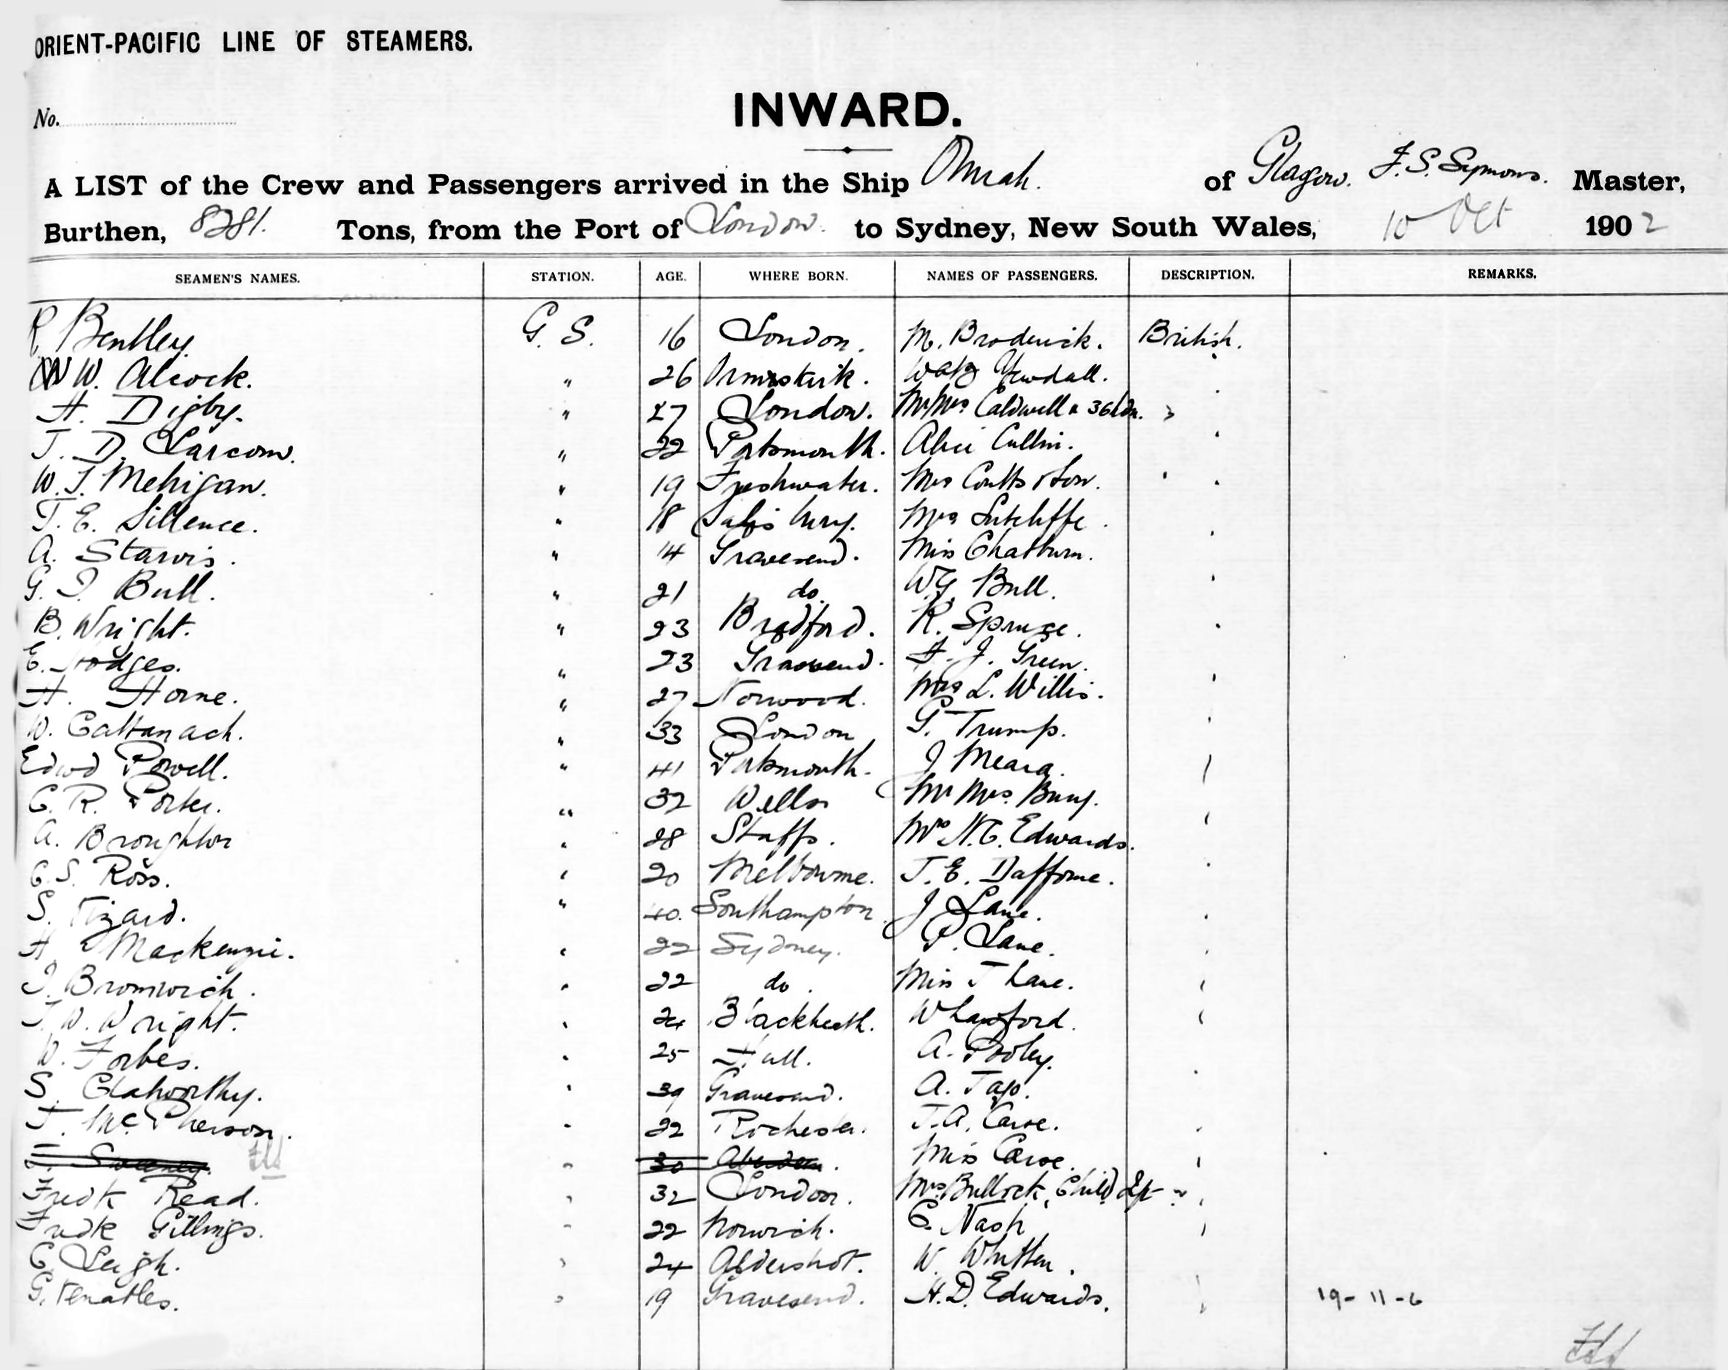 ORIENT-PACIFIC LINE OF STEAMERS.
No.
INWARD.
A LIST of the Crew and Passengers arrived in the Ship Omrah. of Glasgow. F. S. Symons. Master,
Burthen, 8281. Tons, from the Port of London. to Sydney, New South Wales, 10 Oct 1902
SEAMEN'S NAMES. STATION. AGE. WHERE BORN. NAMES OF PASSENGERS. DESCRIPTION. REMARKS.
R. Bentley. G. S. 16 London. M. Broderick. British.
W. Alcock. " 26 Ormskirk. Yewdall.
H. Digby. " 27 London. Mr Mrs Caldwell & 3 "
J. D. Larcom. " 22 Portsmouth. Alice Cullin.
W. J. Mehigan. " 19 Freshwater. Mrs Coutts & Son.
T. E. Sillence. " 18 Salisbury. Mrs Sutcliffe.
A. Starvis. " 14 Gravesend. Miss Chatburn.
G. J. Bull. " 21 do. W. G. Bull.
B. Wright. " 23 Bradford. R. Spruce.
E. Hodges. " 23 Gravesend. H. J. Green.
H. Horne. " 27 Norwood. Mrs L. Willis.
W. Cattanach. " 33 London G. Trump.
Edwd Powell. " 41 Portsmouth. J Meara.
C. R. Porter. " 32 Wells Mr Mrs Buny.
A. Broughton " 28 Staffs. Mrs N. C. Edwards.
C. S. Ross. " 20 Melbourne. J. E. Dafforne.
S. Tizard. " 40. Southampton. J Lane.
H Mackenzie. " 22 Sydney. P. Lane.
J. Bromwich. " 22 do. Miss T Lane.
J. W. Wright. " 24 Blackheath. Wharford.
W. Forbes. " 25 Hull. A. Pooley.
S. Clatworthy. " 39 Gravesend. A. Tap.
J. McPherson. " 22 Rochester. J. A. Carve.
J. Sweeney. " 30 Aberdeen. Miss Carve.
Fredk Read. " 32 London. Mrs Bullock, Child, Inft "
Fredk Gillings. " 22 Norwich. C. Nash
C. Leigh. " 24 Aldershot. W. Whitten.
G. Venables. " 19 Gravesend. H. D. Edwards. 19-11-6